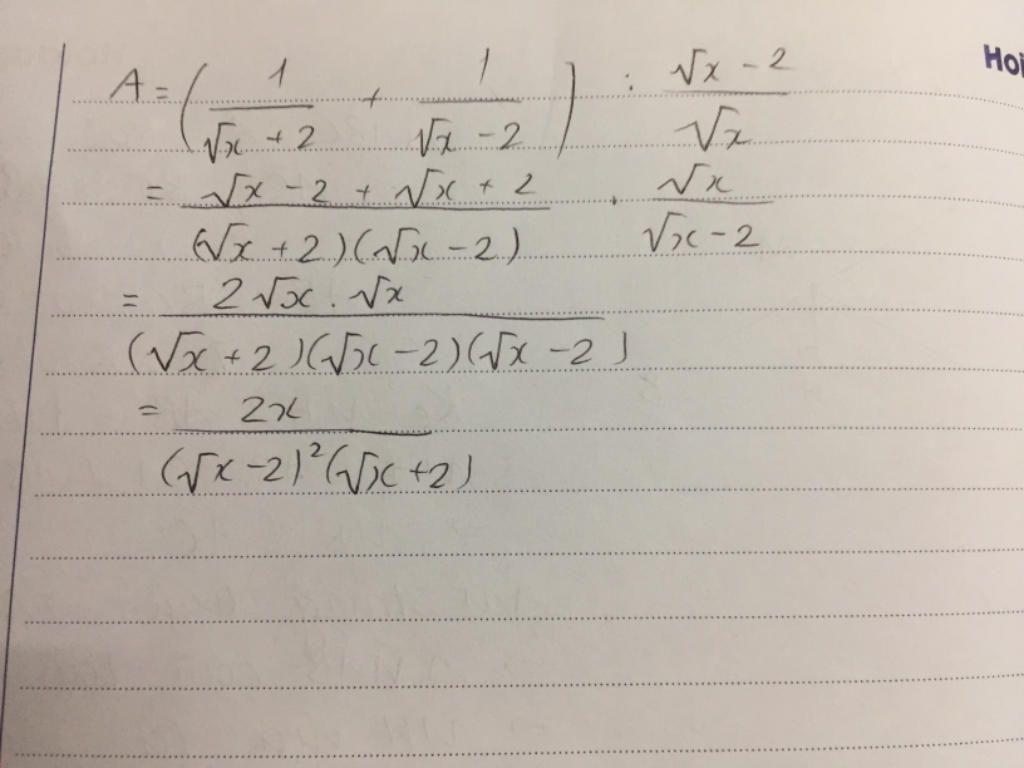 Hoi
A = ( 1/(√x + 2) + 1/(√x - 2) ) : (√x - 2)/√x
= (√x - 2 + √x + 2)/((√x + 2)(√x - 2)) . √x/(√x - 2)
= (2√x . √x)/((√x + 2)(√x - 2)(√x - 2))
= 2x/((√x - 2)²(√x + 2))